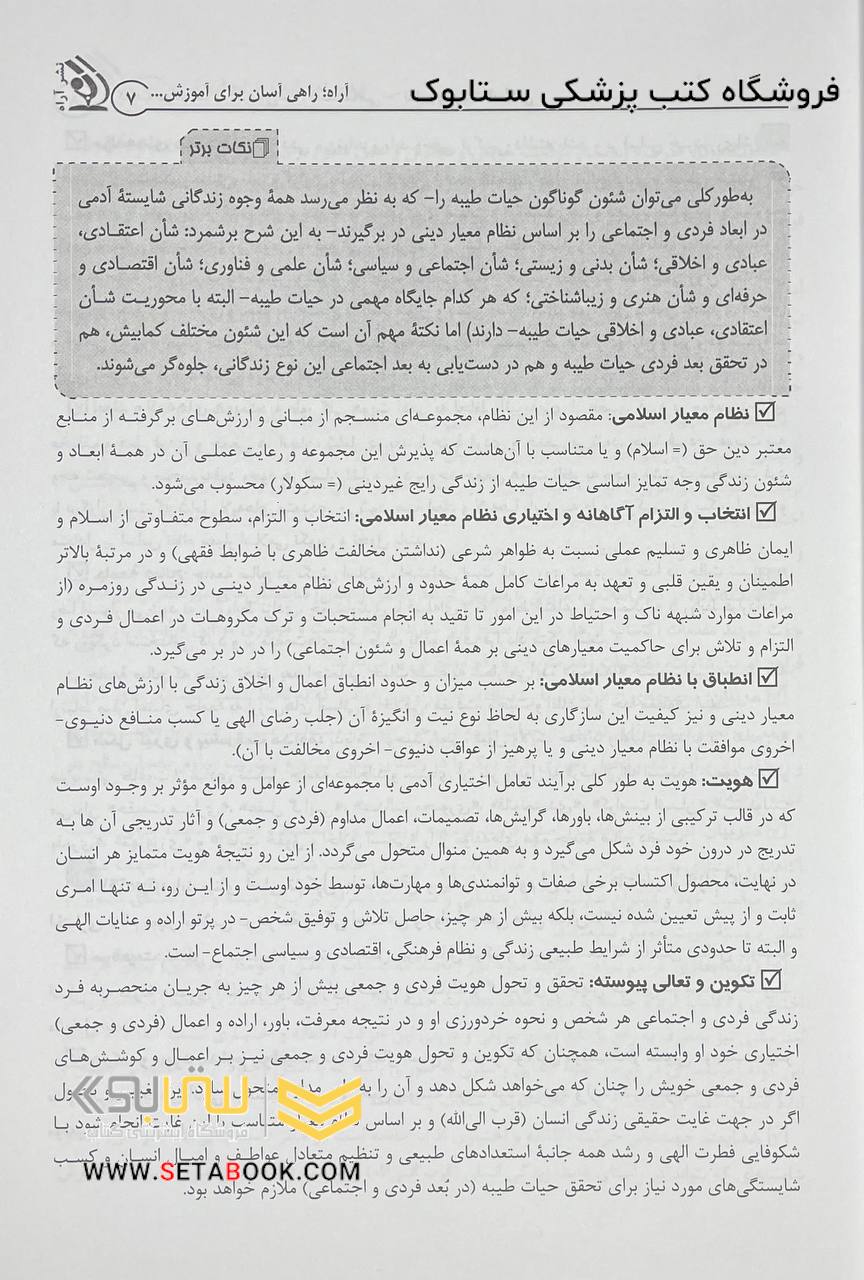 فروشگاه کتب پزشکی ستابوک
آراه؛ راهی آسان برای آموزش...
۷
نشر آراه
نکات برتر
به‌طورکلی می‌توان شئون گوناگون حیات طیبه را– که به نظر می‌رسد همهٔ وجوه زندگانی شایستهٔ آدمی
در ابعاد فردی و اجتماعی را بر اساس نظام معیار دینی در برگیرند– به این شرح برشمرد: شأن اعتقادی،
عبادی و اخلاقی؛ شأن بدنی و زیستی؛ شأن اجتماعی و سیاسی؛ شأن علمی و فناوری؛ شأن اقتصادی و
حرفه‌ای و شأن هنری و زیباشناختی؛ که هر کدام جایگاه مهمی در حیات طیبه– البته با محوریت شأن
اعتقادی، عبادی و اخلاقی حیات طیبه– دارند) اما نکتهٔ مهم آن است که این شئون مختلف کمابیش، هم
در تحقق بعد فردی حیات طیبه و هم در دست‌یابی به بعد اجتماعی این نوع زندگانی، جلوه‌گر می‌شوند.
☑ نظام معیار اسلامی: مقصود از این نظام، مجموعه‌ای منسجم از مبانی و ارزش‌های برگرفته از منابع
معتبر دین حق (= اسلام) و یا متناسب با آن‌هاست که پذیرش این مجموعه و رعایت عملی آن در همهٔ ابعاد و
شئون زندگی وجه تمایز اساسی حیات طیبه از زندگی رایج غیردینی (= سکولار) محسوب می‌شود.
☑ انتخاب و التزام آگاهانه و اختیاری نظام معیار اسلامی: انتخاب و التزام، سطوح متفاوتی از اسلام و
ایمان ظاهری و تسلیم عملی نسبت به ظواهر شرعی (نداشتن مخالفت ظاهری با ضوابط فقهی) و در مرتبهٔ بالاتر
اطمینان و یقین قلبی و تعهد به مراعات کامل همهٔ حدود و ارزش‌های نظام معیار دینی در زندگی روزمره (از
مراعات موارد شبهه ناک و احتیاط در این امور تا تقید به انجام مستحبات و ترک مکروهات در اعمال فردی و
التزام و تلاش برای حاکمیت معیارهای دینی بر همهٔ اعمال و شئون اجتماعی) را در در بر می‌گیرد.
☑ انطباق با نظام معیار اسلامی: بر حسب میزان و حدود انطباق اعمال و اخلاق زندگی با ارزش‌های نظام
معیار دینی و نیز کیفیت این سازگاری به لحاظ نوع نیت و انگیزهٔ آن (جلب رضای الهی یا کسب منافع دنیوی–
اخروی موافقت با نظام معیار دینی و یا پرهیز از عواقب دنیوی– اخروی مخالفت با آن).
☑ هویت: هویت به طور کلی برآیند تعامل اختیاری آدمی با مجموعه‌ای از عوامل و موانع مؤثر بر وجود اوست
که در قالب ترکیبی از بینش‌ها، باورها، گرایش‌ها، تصمیمات، اعمال مداوم (فردی و جمعی) و آثار تدریجی آن ها به
تدریج در درون خود فرد شکل می‌گیرد و به همین منوال متحول می‌گردد. از این رو نتیجهٔ هویت متمایز هر انسان
در نهایت، محصول اکتساب برخی صفات و توانمندی‌ها و مهارت‌ها، توسط خود اوست و از این رو، نه تنها امری
ثابت و از پیش تعیین شده نیست، بلکه بیش از هر چیز، حاصل تلاش و توفیق شخص– در پرتو اراده و عنایات الهی
و البته تا حدودی متأثر از شرایط طبیعی زندگی و نظام فرهنگی، اقتصادی و سیاسی اجتماع– است.
☑ تکوین و تعالی پیوسته: تحقق و تحول هویت فردی و جمعی بیش از هر چیز به جریان منحصربه فرد
زندگی فردی و اجتماعی هر شخص و نحوه خردورزی او و در نتیجه معرفت، باور، اراده و اعمال (فردی و جمعی)
اختیاری خود او وابسته است، همچنان که تکوین و تحول هویت فردی و جمعی نیز بر اعمال و کوشش‌های
فردی و جمعی خویش را چنان که می‌خواهد شکل دهد و آن را به متحول سازد. این و تحول
اگر در جهت غایت حقیقی زندگی انسان (قرب الی‌الله) و بر اساس نظام معیار متناسب با این غایت انجام شود با
شکوفایی فطرت الهی و رشد همه جانبهٔ استعدادهای طبیعی و تنظیم متعادل عواطف و امیال انسان و کسب
شایستگی‌های مورد نیاز برای تحقق حیات طیبه (در بُعد فردی و اجتماعی) ملازم خواهد بود.
ستابوک
فروشگاه اینترنتی کتاب
WWW.SETABOOK.COM